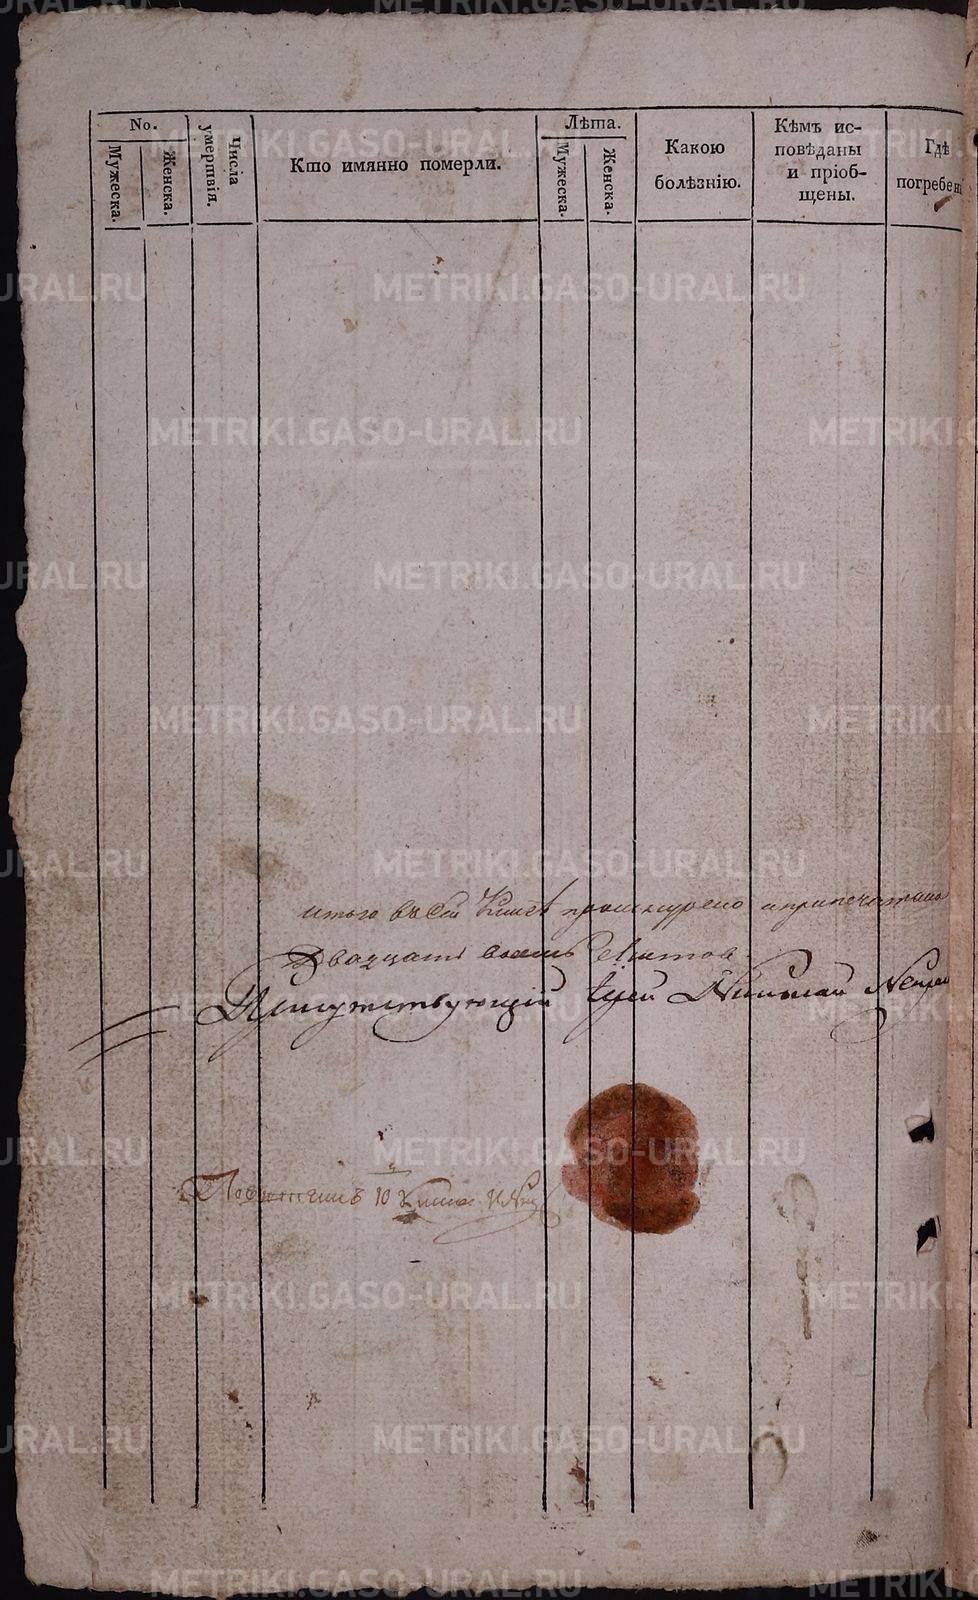 No.
Мужеска.
Женска.
Числа умертвія.
Кто имянно померли.
Лѣта.
Мужеска.
Женска.
Какою
болѣзнію.
Кѣмъ ис-
повѣданы
и пріоб-
щены.
Гдѣ
погребен
итого въ сей книгѣ прошнурено и припечатано
Двадцать восемь листов
Присутствующій Іерей Николай
10
METRIKI.GASO-URAL.RU